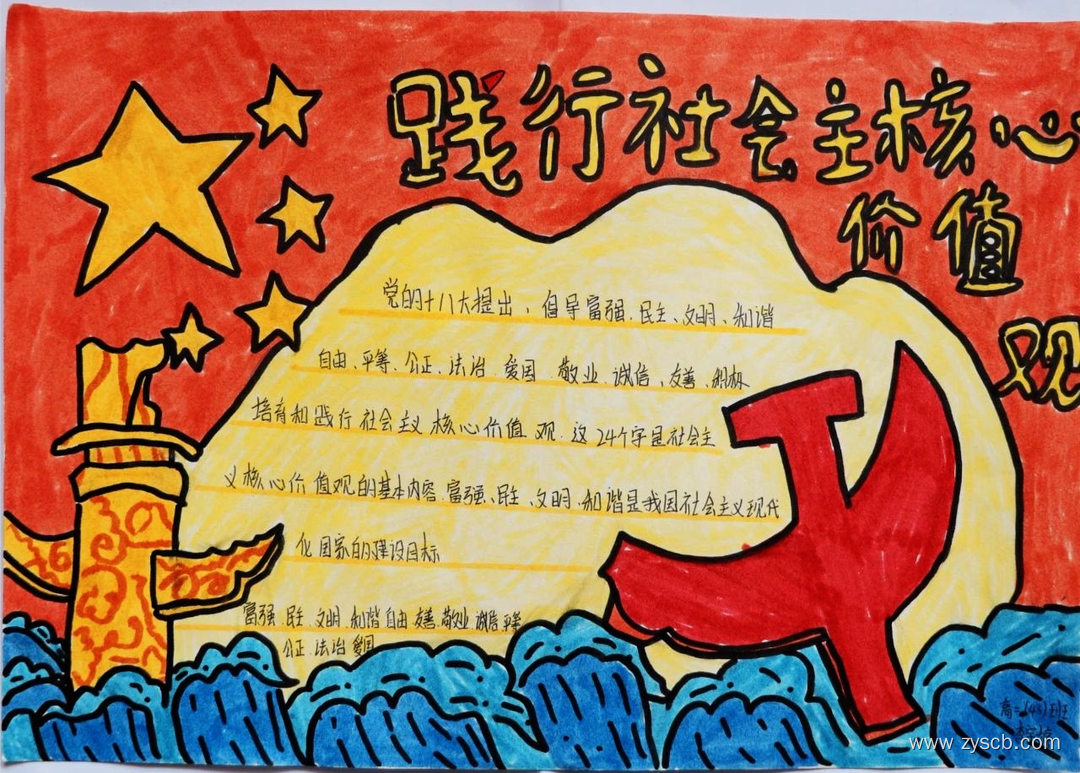 践行社会主核心
价值
观
党的十八大提出，倡导富强、民主、文明、和谐
自由、平等、公正、法治、爱国、敬业、诚信、友善、积极
培育和践行社会主义核心价值观.这24个字是社会主
义核心价值观的基本内容.富强、民主、文明、和谐是我国社会主义现代
化国家的建设目标
富强、民主、文明、和谐自由、友善、敬业、诚信、平等
公正、法治爱国
高二(43)班
www.zyscb.com